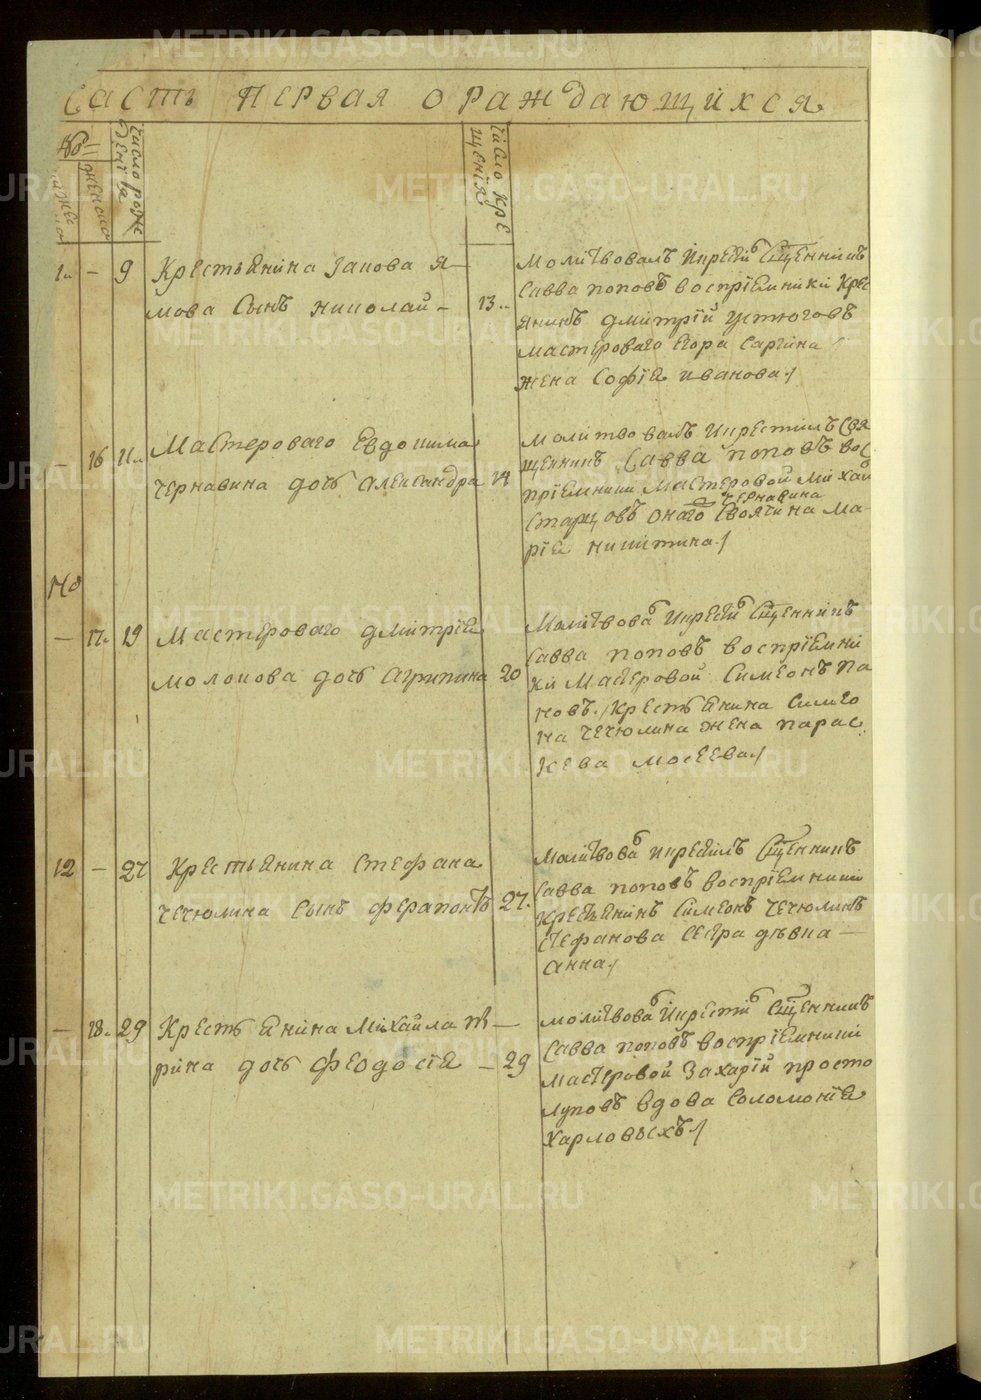 METRIKI.GASO-URAL.RU
Часть первая о раждающихся
число рожденїя
число крещенїя
женска
9 Крестьянина Iакова Я-
мова сынъ николай - 13
Молитвовалъ и крести священникъ
Савва поповъ воспрїемники крес
янинъ дмитрїй устюговъ
мастероваго егора саргина
жена Софїя иванова
16 11 Мастероваго Евдокима
чернавина дочь александра 14
Молитвовалъ и крестилъ свя
щенникъ Савва поповъ вос
прїемники мастеровой михаи
старцовъ онаго чернавина своячина ма-
рїя никитина
но
17 19 Мастероваго дмитрїя
молокова дочь агрипина 20
Молитвова и крести священникъ
Савва поповъ воспрїемни
ки мастеровой симеонъ па
новъ крестьянина симео
на чечюлина жена парас
кева мосеева
12 - 27 Крестьянина стефана
чечюлина сынъ ферапонтъ 27
Молитвова и крестилъ священникъ
Савва поповъ воспрїемники
крестьянинъ симеонъ чечюлинъ
стефанова сестра дѣвка
анна
- 18 29 Крестьянина михайла
рина дочь феодосїя - 29
молитвова и крести священникъ
Савва поповъ воспрїемники
мастеровой захарїй просто
луповъ вдова соломонїя
харловыхъ